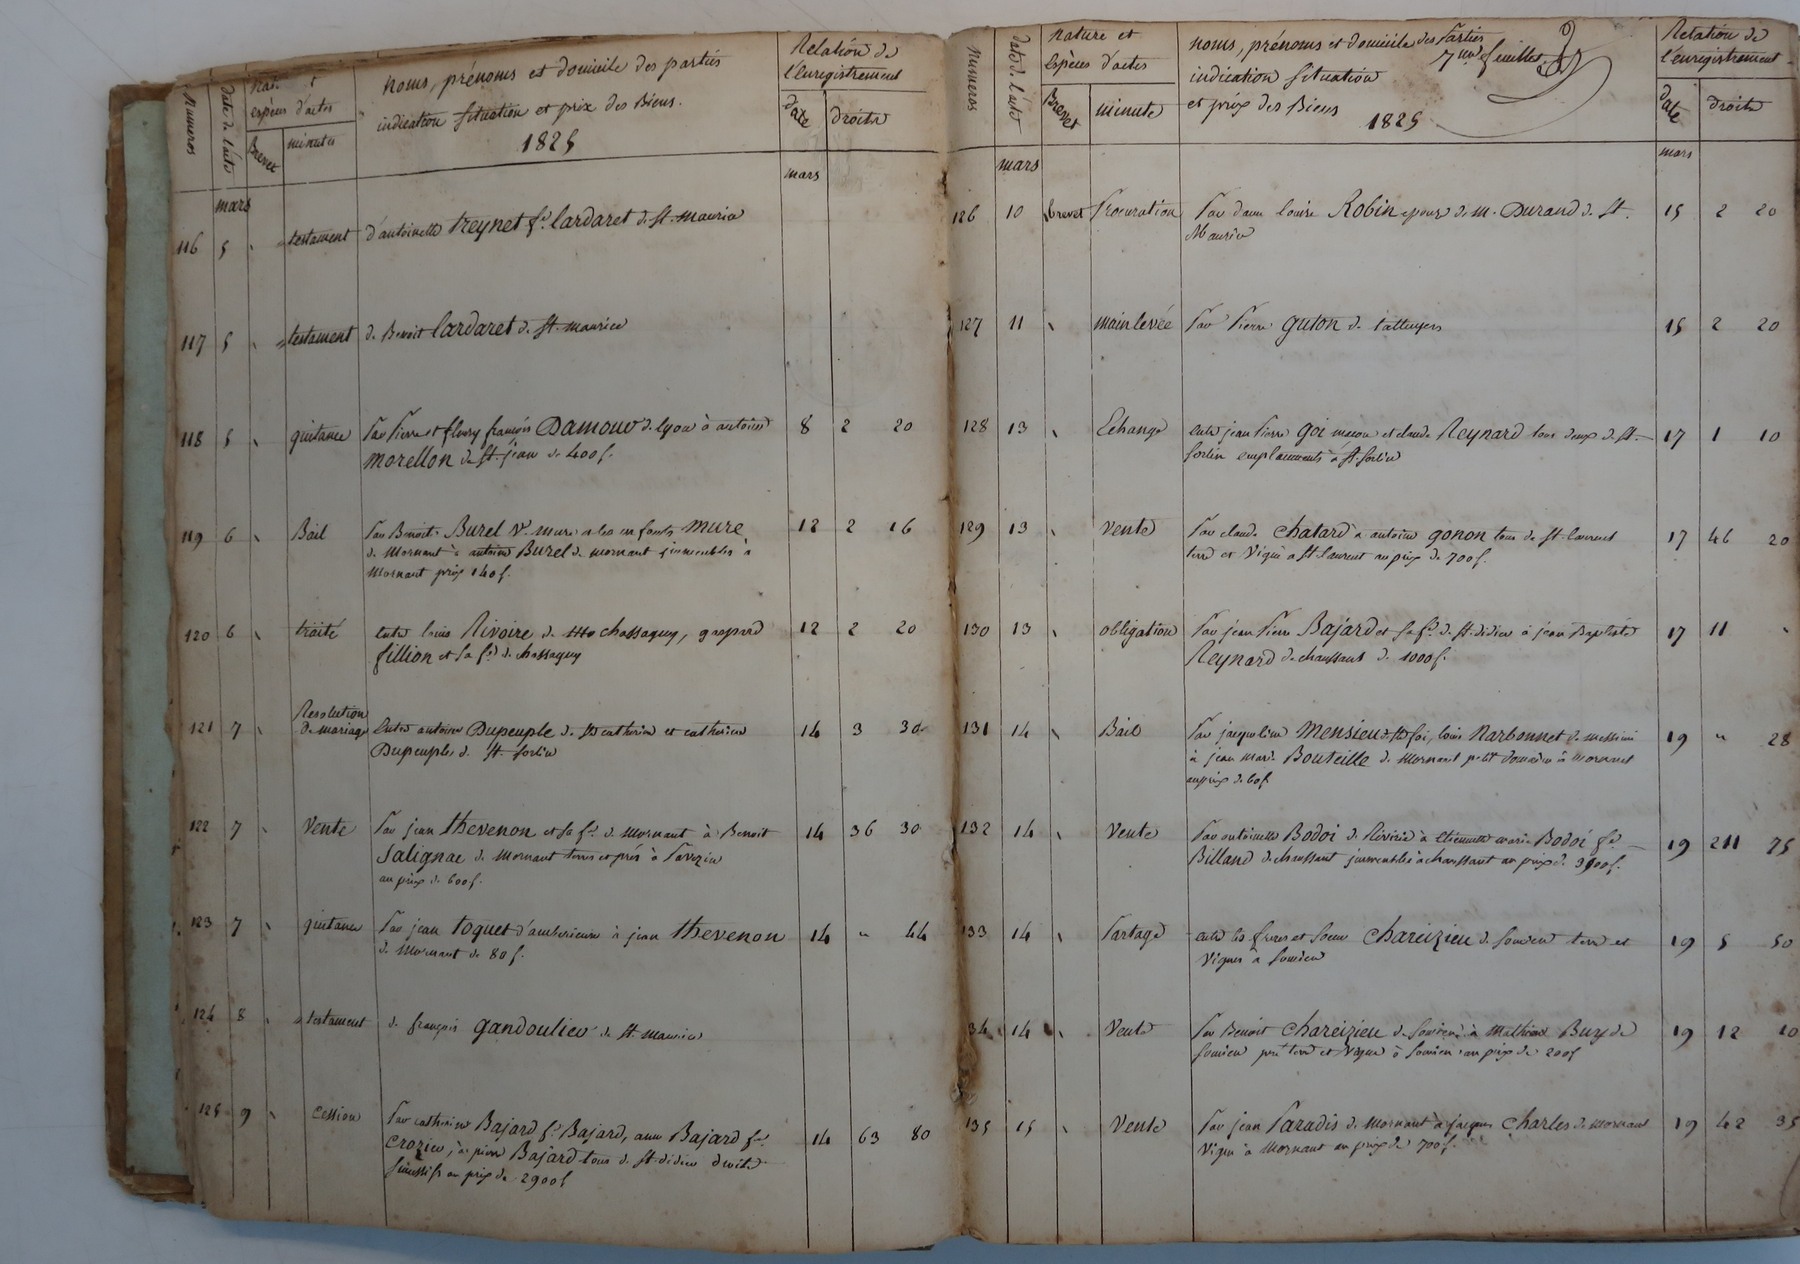 Numeros
date de l'acte
Nat. et
espèces d'actes
Brevet
minutes
noms, prénoms et domicile des parties
indication Situation et prix des Biens.
1825
Relation de
l'enregistrement
Date
droits
mars
mars
116 5 testament d'antoinette treynet fe. lardaret de St. maurice
117 5 testament de Benoit lardaret de St. maurice
118 5 quitance Par Pierre et fleury françois Damour de lyon à antoine 8 2 20
morellon de St. jean de 400 f.
119 6 Bail Par Benoite Burel Ve. mure et les enfants mure 12 2 16
de Mornant à antoine Burel de mornant immeubles à
Mornant prix 140 f.
120 6 traité entre louis Rivoire de chassagny, gaspard 12 2 20
fillion et sa fe. de chassagny
121 7 Resolution
de mariage Entre antoine Dupeuple de Ste catherine et catherine 14 3 30
Dupeuple de St. Sorlin
122 7 Vente Par jean thevenon et sa fe. de Mornant à Benoit 14 36 30
Salignac de Mornant terres et prés à
au prix de 600 f.
123 7 quitance Par jean toquet à jean thevenon 14 " 44
de Mornant de 80 f.
124 8 testament de françois gandoulieu de St. Maurice
125 9 Cession Par catherine Bajard fe. Bajard, anne Bajard fe. 14 63 80
Crozier, à pierre Bajard tous de St. didier droits
au prix de 2900 f
Numeros
date de l'acte
Nature et
Espèces d'actes
Brevet
minute
Noms, prénoms et domicile des Parties
7me feuillet
indication Situation
et prix des Biens
1825
Relation de
l'enregistrement
date
droits
mars
mars
126 10 brevet Procuration Par dame louise Robin epouse de M. Durand de St. 15 2 20
Maurice
127 11 mainlevée Par Pierre guton de taluyers 15 2 20
128 13 Echange entre jean Pierre goi macon et claude Reynard tous deux de St. 17 1 10
Sorlin emplacements à St. Sorlin
129 13 Vente Par claude chatard à antoine gonon tous de St. laurent 17 46 20
terre et Vigne à St. laurent au prix de 700 f.
130 13 obligation Par jean Pierre Bajard et sa fe. de St. didier à jean Baptiste 17 11
Reynard de chaussant de 1000 f.
131 14 Bail Par jacqueline Mensieu, louis Narbonnet de messimi 19 " 28
à jean marie Bouteille de Mornant petit domaine à Mornant
au prix de 60 f
132 14 Vente Par antoinette Bodoi de Riverie à Etiennette marie Bodoi fe. 19 211 75
Billand de chaussant immeubles à chaussant au prix de 3900 f.
133 14 Partage entre les freres et soeur Chareizieu de Soucieu terre et 19 5 50
Vignes à Soucieu
134 14 Vente Par Benoit Chareizieu de Soucieu à Mathieu Buy de 19 12 10
Soucieu pré terre et Vigne à Soucieu au prix de 200 f
135 15 Vente Par jean Paradis de Mornant à jacques Charles de Mornant 19 42 35
Vigne à Mornant au prix de 700 f.